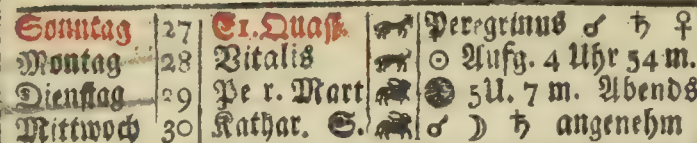 Sonntag 27 E1. Quaſi. Peregrinus ☌ ♄ ♀
Montag 28 Vitalis ☉ Aufg. 4 Uhr 54 m.
Dienſtag 29 Pe r. Mart 5 U. 7 m. Abends
Mittwoch 30 Kathar. S. ☌ ☽ ♄ angenehm